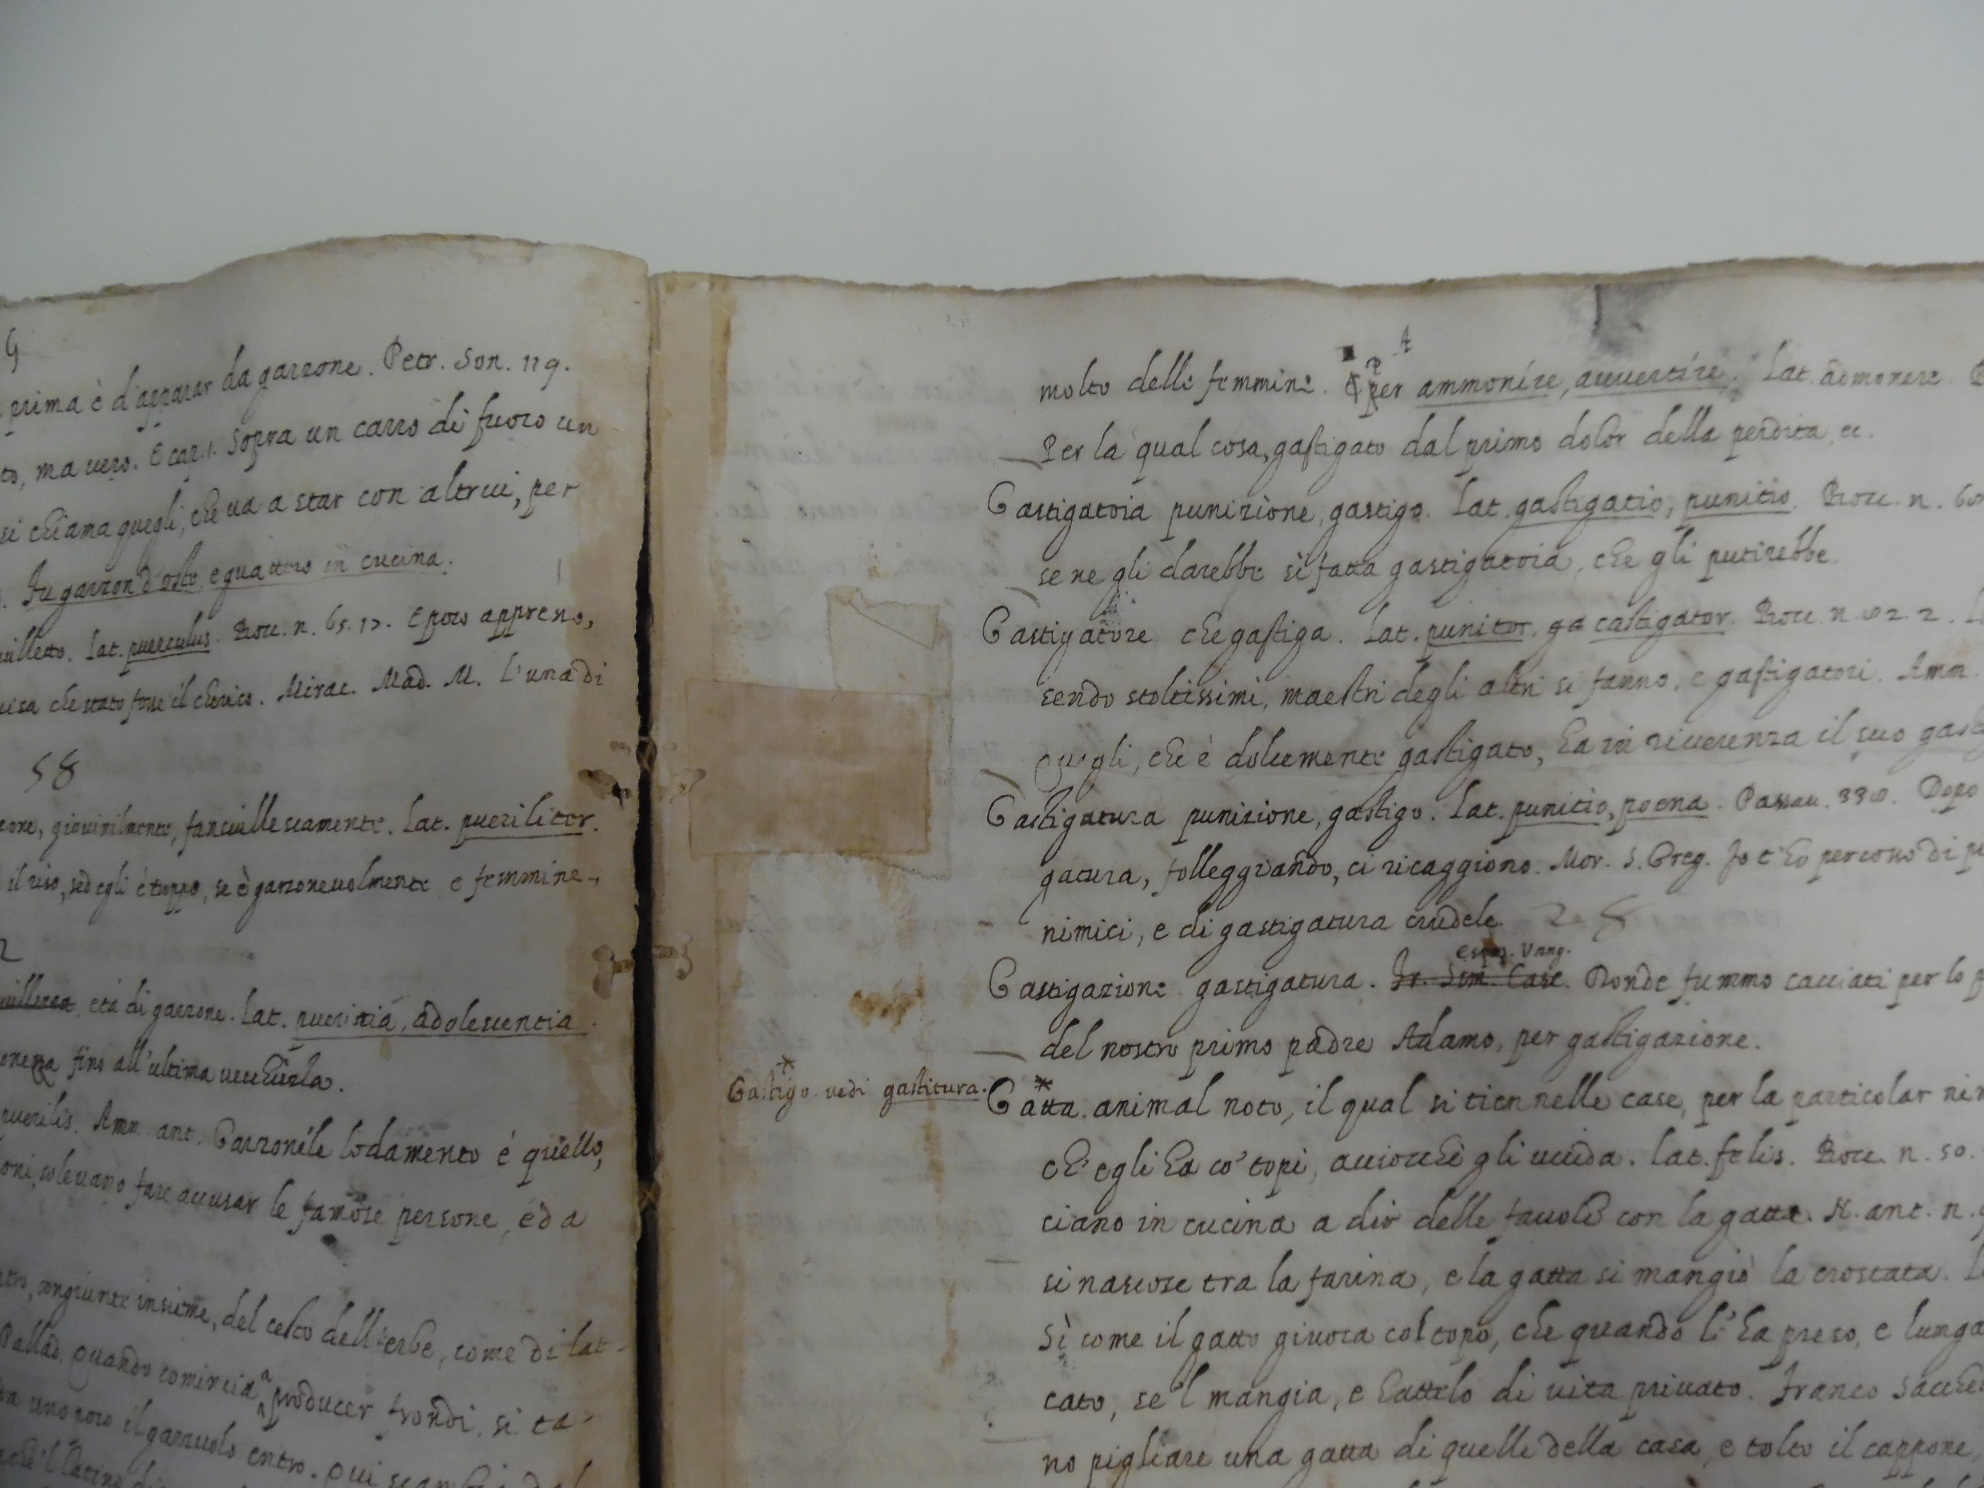 G
prima è d'apparar da garzone. Petr. Son. 119.
to, ma vero. E cap. 1. Sopra un carro di fuoco un
si chiama quegli, che va a star con altrui, per
Fu garzon d'oste, e guattero in cucina.
Lat. puerculus. Bocc. n. 65. 17. E poco appresso,
che stato fosse il cherico. Mirac. Mad. M. L'una di
58
giovinilmente, fanciullescamente. Lat. pueriliter.
il riso, sed egli è troppo, se è garzonevolmente e femmine-
2
età di garzone. Lat. pueritia, adolescentia.
fino all'ultima vecchiezza.
puerilis. Amm. ant. Garzonéle lodamento è quello,
solevano fare accusar le famose persone, ed a
congiunte insieme, del cesto dell'erbe, come di lat-
Pallad. Quando comincia a producer frondi, si ca-
uno poco il garzuolo entro. Qui scambi
molto delle femmine. Per ammonire, avvertire. Lat. admonere.
Per la qual cosa, gastigato dal primo dolor della perdita, ec.
Gastigatoia punizione, gastigo. Lat. gastigatio, punitio. Bocc. n. 60
se ne gli darebbe sì fatta gastigatoia, che gli putirebbe.
Gastigatore che gastiga. Lat. punitor, ga castigator. Bocc. n. 82. 2.
sendo stoltissimi, maestri degli altri si fanno, e gastigatori. Amm.
quegli, che è dolcemente gastigato, ha in riverenza il suo
Gastigatura punizione, gastigo. Lat. punitio, poena. Passav. 338. Dopo
gatura, folleggiando, ci ricaggiono. Mor. S. Greg. Io t'ho percosso di
nimici, e di gastigatura crudele.
Espos. Vang.
Gastigazione gastigatura. Fr. Sim. Casc. Donde fummo cacciati per lo
del nostro primo padre Adamo, per gastigazione.
* Gastigo vedi gastitura.
* Gatta. animal noto, il qual si tien nelle case, per la particolar
ch'egli ha co' topi, acciocchè gli uccida. Lat. felis. Bocc. n. 50.
ciano in cucina a dir delle favole con la gatta. N. ant. n.
si nascose tra la farina, e la gatta si mangiò la crostata.
Sì come il gatto giuoca col topo, che quando l'ha preso, e lunga
cato, se'l mangia, e hattelo di vita privato. Franco Sacche
no pigliare una gatta di quelle della casa, e tolto il cappone,